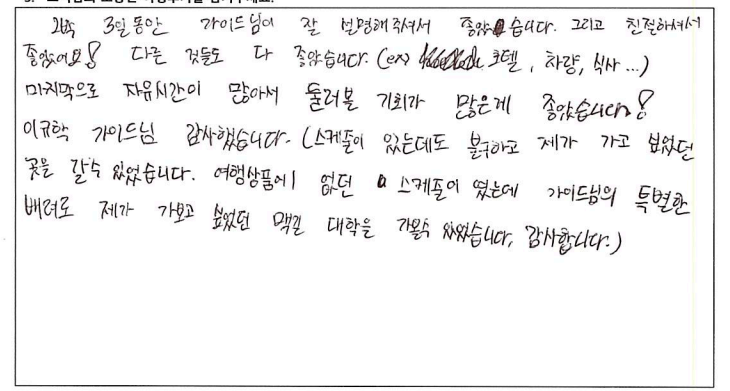 2박 3일 동안 가이드님이 잘 설명해주셔서 좋았습니다. 그리고 친절하셔서
좋았어요! 다른 것들도 다 좋았습니다. (ex) 호텔, 차량, 식사 ...)
마지막으로 자유시간이 많아서 둘러볼 기회가 많은게 좋았습니다!
이규학 가이드님 감사했습니다. (스케줄이 있는데도 불구하고 제가 가고 싶었던
곳을 갈수 있었습니다. 여행상품에 없던 스케줄이였는데 가이드님의 특별한
배려로 제가 가보고 싶었던 맥길 대학을 가볼수 있었습니다, 감사합니다.)